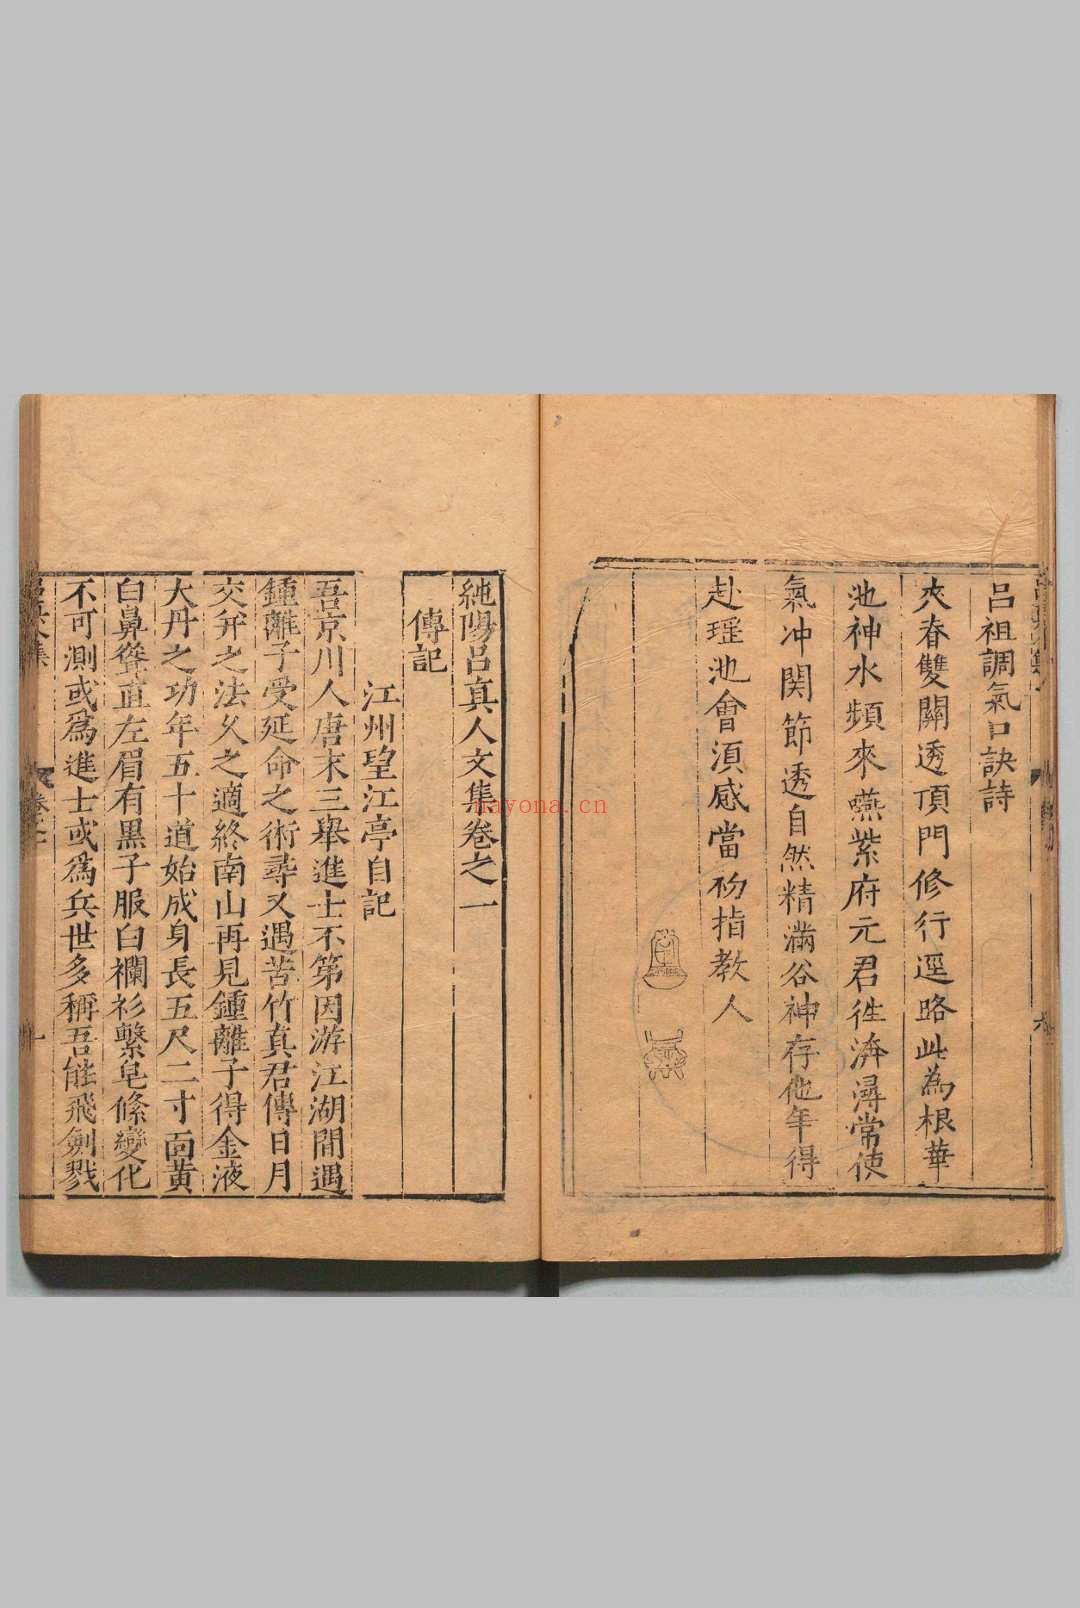 呂祖調氣口訣詩
夾脊雙關透頂門修行逕路此為根華
池神水頻來嚥紫府元君徃濟潯常使
氣冲関節透自然精滿谷神存他年得
赴瑤池會湏感當初指教人
純陽呂真人文集卷之一
傳記
江州望江亭自記
吾京川人唐末三舉進士不第因游江湖間遇
鍾離子受延命之術尋又遇苦竹真君傳日月
交幷之法久之適終南山再見鍾離子得金液
大丹之功年五十道始成身長五尺二寸面黄
白鼻聳直左眉有黒子服白襴衫繫皂絛變化
不可測或爲進士或爲兵世多稱吾能飛劍戮
nayona.cn